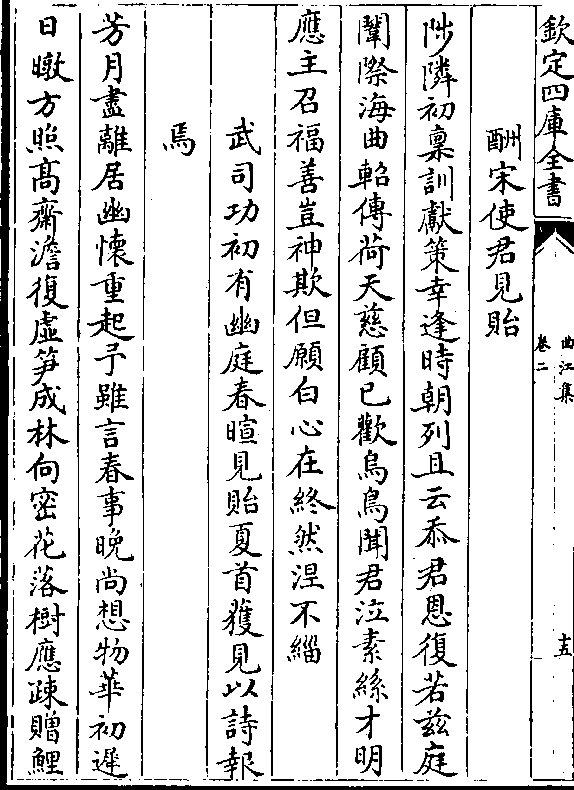 欽定四庫全書
曲江集
卷二
十五
酬宋使君見貽
陟隣初稟訓獻策幸逢時朝列且云忝君恩復若兹庭
闈際海曲軺傳荷天慈顧已歡烏鳥聞君泣素絲才明
應主召福善豈神欺但願白心在終然涅不緇
武司功初有幽庭春暄見貽夏首獲見以詩報
焉
芳月盡離居幽懷重起予雖言春事晚尚想物華初遲
日暾方照髙齋澹復虛笋成林向密花落樹應疎贈鯉